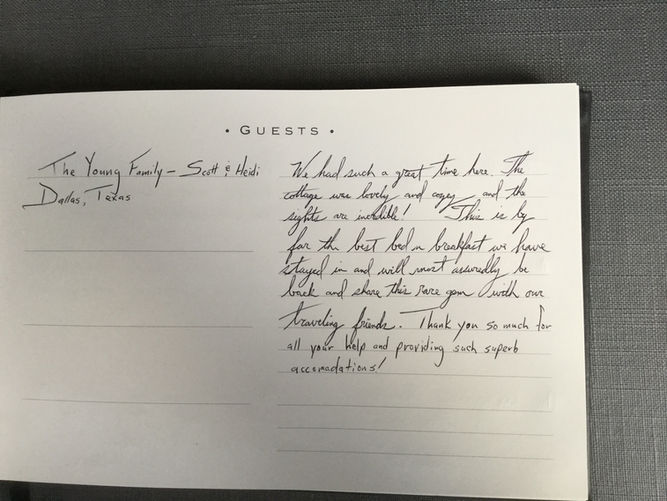 • GUESTS •
The Young Family – Scott & Heidi
Dallas, Texas
We had such a great time here. The
cottage was lovely and cozy and the
sights are incredible! This is by
far the best bed n breakfast we have
stayed in and will most assuredly be
back and share this rare gem with our
traveling friends. Thank you so much for
all your help and providing such superb
accomadations!